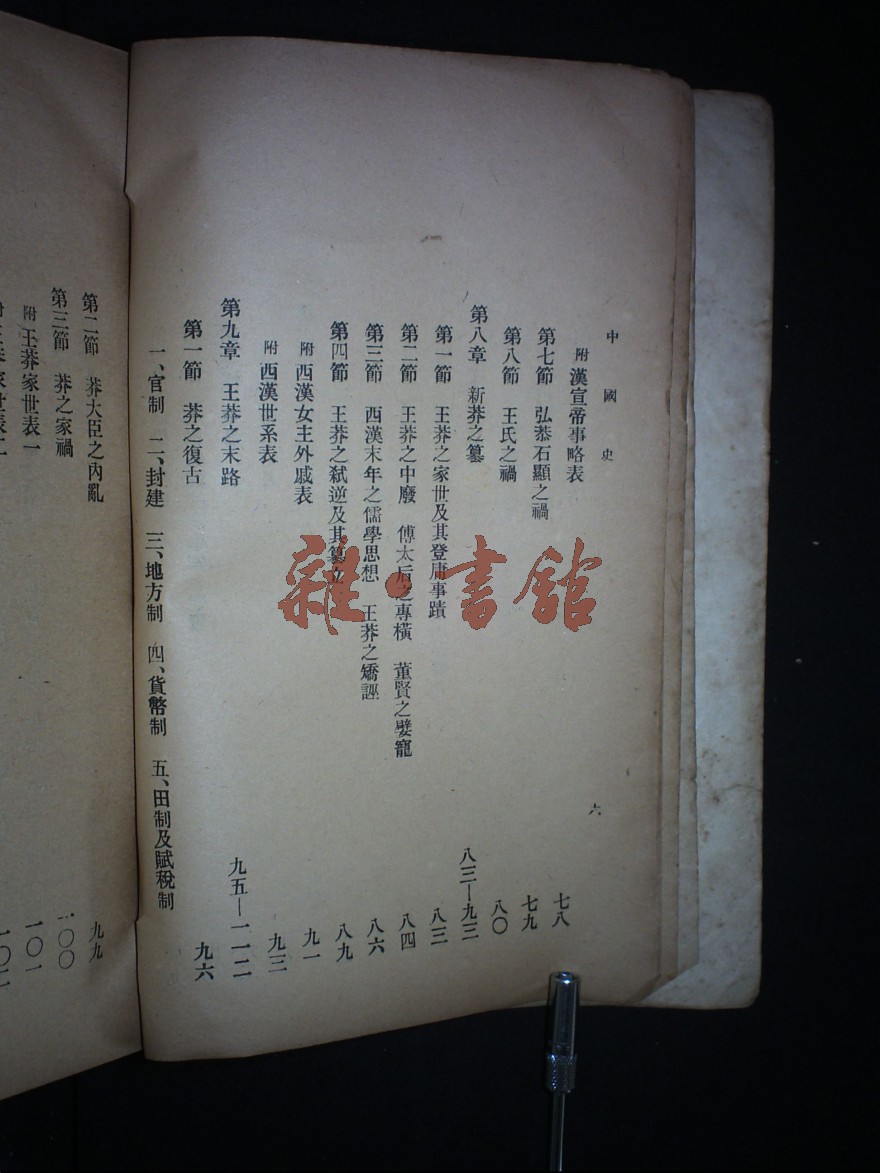 中國史
六
附 漢宣帝事略表 七八
第七節 弘恭石顯之禍 七九
第八節 王氏之禍 八〇
第八章 新莽之篡 八三—九三
第一節 王莽之家世及其登庸事蹟 八三
第二節 王莽之中廢 傅太后之專橫 董賢之嬖寵 八四
第三節 西漢末年之儒學思想 王莽之矯誣 八六
第四節 王莽之弒逆及其篡立 八九
附 西漢女主外戚表 九一
附 西漢世系表 九三
第九章 王莽之末路 九五—一一二
第一節 莽之復古 九六
一、官制 二、封建 三、地方制 四、貨幣制 五、田制及賦稅制
第二節 莽大臣之內亂 九九
第三節 莽之家禍 一〇〇
附 王莽家世表一 一〇一
雜·書館